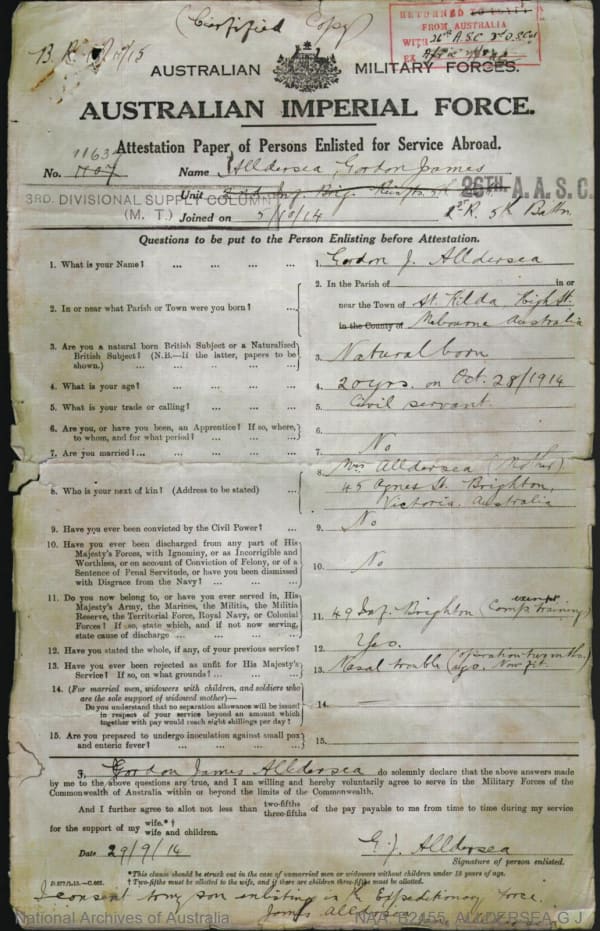 (Certified Copy)
RETURNED TO
FROM AUSTRALIA
WITH 26th A.S.C.
AUSTRALIAN MILITARY FORCES.
AUSTRALIAN IMPERIAL FORCE.
Attestation Paper of Persons Enlisted for Service Abroad.
1163
No. 1107 Name Alldersea, Gordon James
Unit 2nd Inf. Brig. 26TH. A.A.S.C.
3RD. DIVISIONAL SUPPLY COLUMN
(M. T.) Joined on 5/10/14 1st R. 5th Battn
Questions to be put to the Person Enlisting before Attestation.
1. What is your Name? ... ... ... ... 1. Gordon J. Alldersea
2. In or near what Parish or Town were you born? ... 2. In the Parish of in or
near the Town of St. Kilda High St.
in the County of Melbourne Australia
3. Are you a natural born British Subject or a Naturalized
British Subject? (N.B.—If the latter, papers to be
shown.) ... ... ... ... 3. Natural born
4. What is your age? ... ... ... ... 4. 20 yrs. on Oct. 28/1914
5. What is your trade or calling? ... ... ... 5. Civil servant.
6. Are you, or have you been, an Apprentice? If so, where,
to whom, and for what period? ... ... ... 6.
7. Are you married?... ... ... ... ... 7. No
8. Who is your next of kin? (Address to be stated) ... 8. Mrs Alldersea (Mother)
45 Agnes St. Brighton,
Victoria. Australia
9. Have you ever been convicted by the Civil Power? ... 9. No
10. Have you ever been discharged from any part of His
Majesty's Forces, with Ignominy, or as Incorrigible and
Worthless, or on account of Conviction of Felony, or of a
Sentence of Penal Servitude, or have you been dismissed
with Disgrace from the Navy? ... ... ... 10. No
11. Do you now belong to, or have you ever served in, His
Majesty's Army, the Marines, the Militia, the Militia
Reserve, the Territorial Force, Royal Navy, or Colonial
Forces? If so, state which, and if not now serving,
state cause of discharge ... ... ... 11. 49 Inf. Brighton (Comp. training) exempt
12. Have you stated the whole, if any, of your previous service? 12. Yes.
13. Have you ever been rejected as unfit for His Majesty's
Service? If so, on what grounds? ... ... 13. Nasal trouble (operation two mths. ago. Now fit.
14. (For married men, widowers with children, and soldiers who
are the sole support of widowed mother)—
Do you understand that no separation allowance will be issued
in respect of your service beyond an amount which
together with pay would reach eight shillings per day? 14.
15. Are you prepared to undergo inoculation against small pox
and enteric fever? ... ... ... ... 15.
I, Gordon James Alldersea do solemnly declare that the above answers made
by me to the above questions are true, and I am willing and hereby voluntarily agree to serve in the Military Forces of the
Commonwealth of Australia within or beyond the limits of the Commonwealth.
And I further agree to allot not less than two-fifths three-fifths of the pay payable to me from time to time during my service
for the support of my wife.*† wife and children.
Date 29/9/14 G. J. Alldersea
Signature of person enlisted.
*This clause should be struck out in the case of unmarried men or widowers without children under 18 years of age.
† Two-fifths must be allotted to the wife, and if there are children three-fifths must be allotted.
I consent to my son enlisting in the Expeditionary Force.
James Alldersea
National Archives of Australia NAA: B2455, ALLDERSEA G J